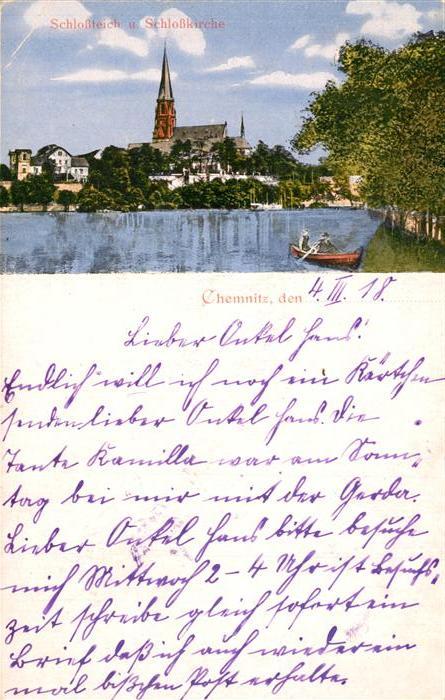 Schloßteich u. Schloßkirche
Chemnitz, den 4. III. 18.
Lieber Onkel Hans!
Endlich will ich noch ein Kärtchen
senden lieber Onkel Hans. Die
Tante Kamilla war am Sonn„
tag bei mir mit der Gerda.
Lieber Onkel Hans bitte besuche
mich Mittwoch 2 – 4 Uhr ist Besuchs„
zeit schreibe gleich sofort ein
Brief daß ich auch wieder ein
mal bißchen Post erhalte.